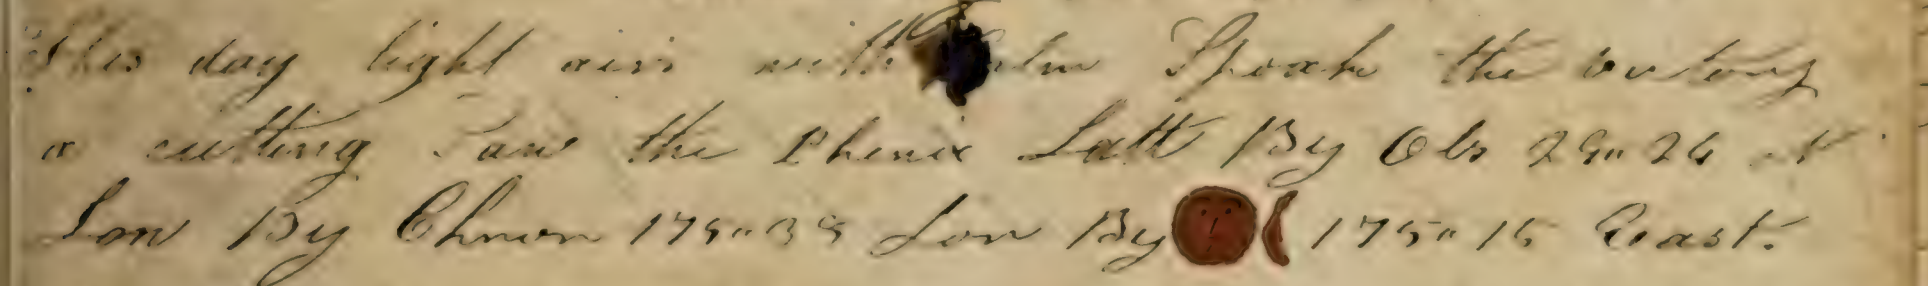 This day light airs with Calm Spoak the
a cutting Saw the Phenix Latt By Obs 29" 26 N
Lon By Chron 175" 38 Lon By 175" 15 East.